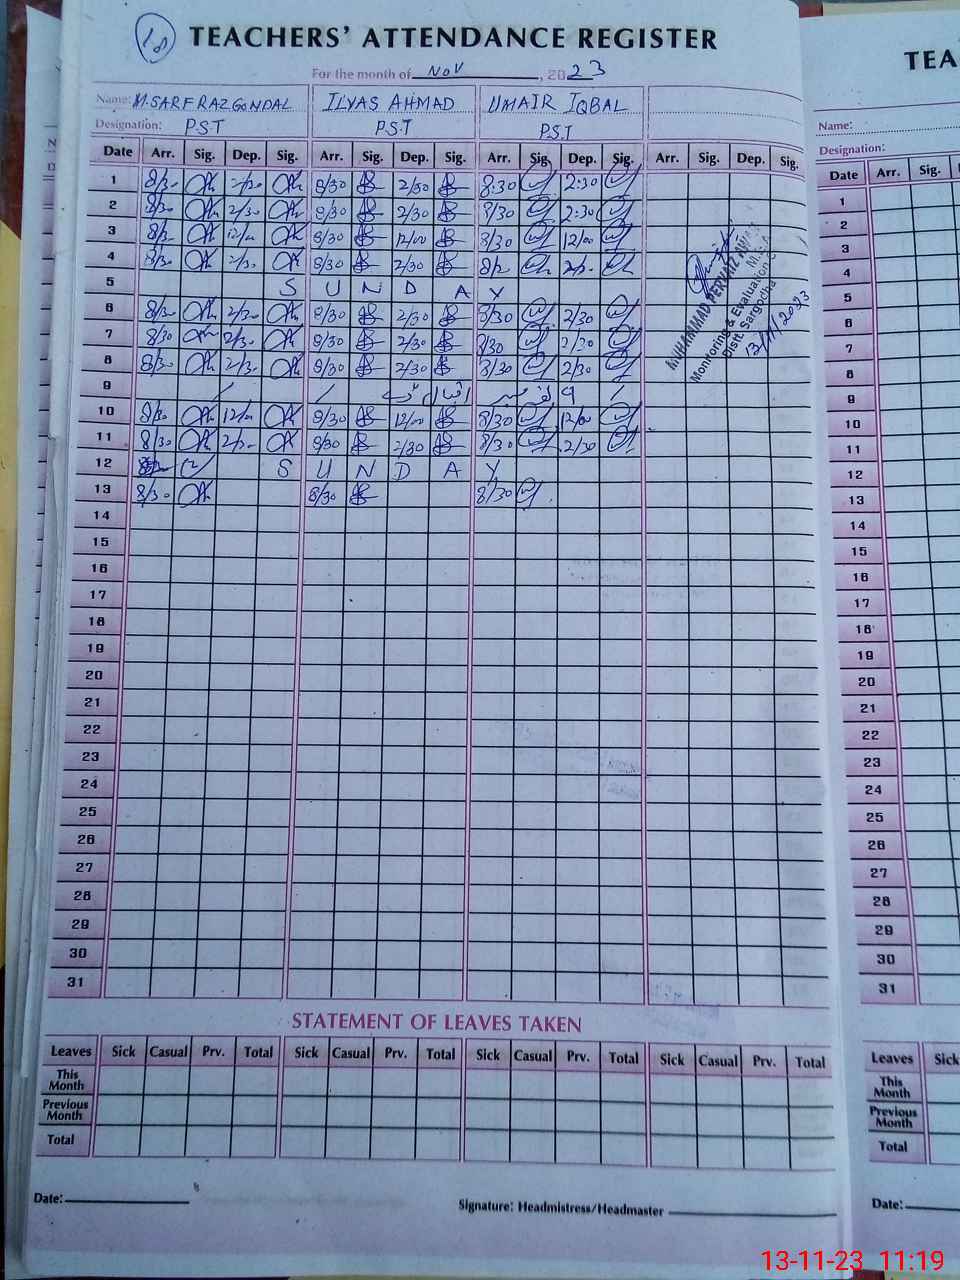 18
TEACHERS' ATTENDANCE REGISTER
For the month of Nov, 2023
Name: M.SARFRAZ GONDAL ILYAS AHMAD UMAIR IQBAL
Designation: P.S.T P.S.T P.S.T
Date Arr. Sig. Dep. Sig. Arr. Sig. Dep. Sig. Arr. Sig. Dep. Sig. Arr. Sig. Dep. Sig.
1 8/30 2/30 8/30 2/30 8:30 2:30
2 8/30 2/30 8/30 2/30 8/30 2:30
3 8/30 12/00 8/30 12/00
4 8/30 2/30 8/30 2/30
5 SUNDAY
6 8/30 2/30 8/30 2/30 8/30 2/30
7 8/30 2/30 8/30 2/30 8/30 2/30
8 8/30 2/30 8/30 2/30 8/30 2/30
9 9 نومبر اقبال ڈے
10 8/30 12/00 8/30 12/00 8/30 12/00
11 8/30 2/30 8/30 2/30 8/30 2/30
12 SUNDAY
13 8/30 8/30 8/30
14
15
16
17
18
19
20
21
22
23
24
25
26
27
28
29
30
31
MUHAMMAD PERVAIZ
Monitoring & Evaluation
Distt. Sargodha
13/11/2023
STATEMENT OF LEAVES TAKEN
Leaves Sick Casual Prv. Total Sick Casual Prv. Total Sick Casual Prv. Total Sick Casual Prv. Total
This Month
Previous Month
Total
Date: Signature: Headmistress/Headmaster
TEA
Name:
Designation:
Date Arr. Sig.
1
2
3
4
5
6
7
8
9
10
11
12
13
14
15
16
17
18
19
20
21
22
23
24
25
26
27
28
29
30
31
Leaves Sick
This Month
Previous Month
Total
Date:
13-11-23 11:19